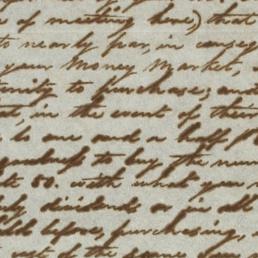 of meeting here) that
to nearly par, in conseq
your Money Market,
unity to purchase; and
that, in the event of their
to one and a half p
goodness to buy, the num
at 80. with what you
dividends or in all
before purchasing,
rest of the same